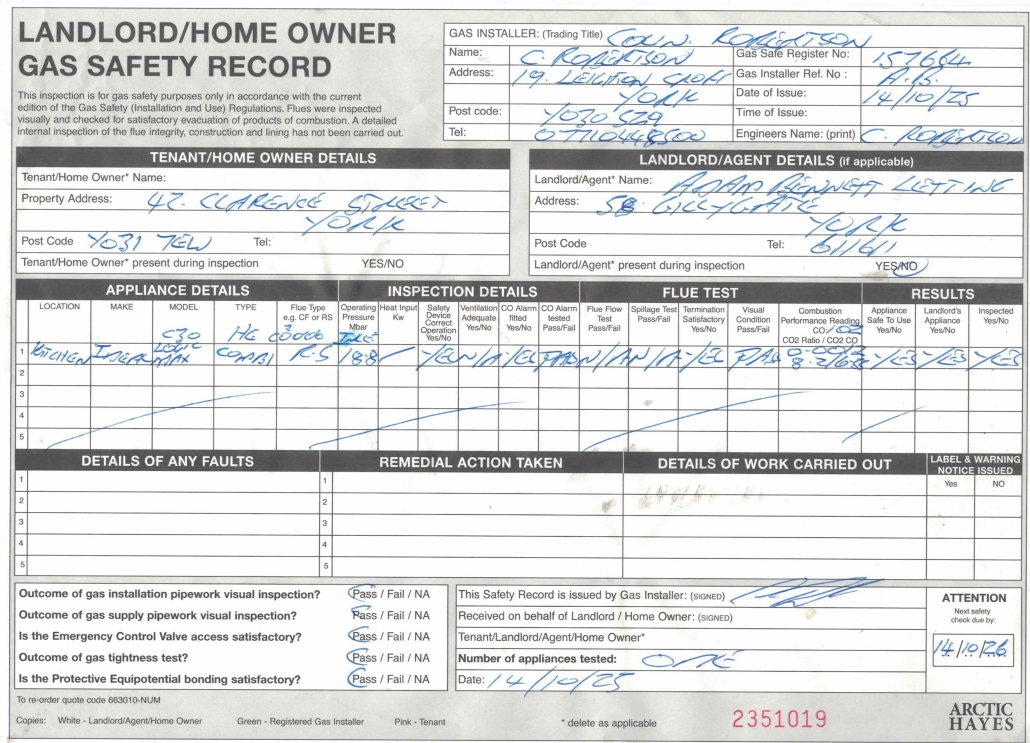 LANDLORD/HOME OWNER
GAS SAFETY RECORD
This inspection is for gas safety purposes only in accordance with the current
edition of the Gas Safety (Installation and Use) Regulations. Flues were inspected
visually and checked for satisfactory evacuation of products of combustion. A detailed
internal inspection of the flue integrity, construction and lining has not been carried out.
GAS INSTALLER: (Trading Title) COLIN. ROBERTSON
Name: C. ROBERTSON
Address: 19. LEIGHTON CROFT
YORK
Post code: YO30 5Z9
Tel: 07710448500
Gas Safe Register No: 157664
Gas Installer Ref. No : A.B.
Date of Issue: 14/10/25
Time of Issue:
Engineers Name: (print) C. ROBERTSON
TENANT/HOME OWNER DETAILS
Tenant/Home Owner* Name:
Property Address: 47. CLARENCE STREET
YORK
Post Code YO31 7EW Tel:
Tenant/Home Owner* present during inspection YES/NO
LANDLORD/AGENT DETAILS (if applicable)
Landlord/Agent* Name: ADAM BENNETT LETTING
Address: 58 GILLYGATE
YORK
Post Code Tel: 611611
Landlord/Agent* present during inspection YES/NO
APPLIANCE DETAILS INSPECTION DETAILS FLUE TEST RESULTS
LOCATION MAKE MODEL TYPE Flue Type e.g. CF or RS Operating Pressure Mbar Heat Input Kw Safety Device Correct Operation Yes/No Ventilation Adequate Yes/No CO Alarm fitted Yes/No CO Alarm tested Pass/Fail Flue Flow Test Pass/Fail Spillage Test Pass/Fail Termination Satisfactory Yes/No Visual Condition Pass/Fail Combustion Performance Reading CO/CO2 CO2 Ratio / CO2 CO Appliance Safe To Use Yes/No Landlord's Appliance Yes/No Inspected Yes/No
C30 HE
1 KITCHEN IDEAL LOGIC MAX COMBI R-S 18.8 YES N/A YES PASS N/A N/A YES PASS YES YES YES
2
3
4
5
DETAILS OF ANY FAULTS REMEDIAL ACTION TAKEN DETAILS OF WORK CARRIED OUT LABEL & WARNING NOTICE ISSUED
Yes NO
1 1
2 2
3 3
4 4
5 5
Outcome of gas installation pipework visual inspection? Pass / Fail / NA
Outcome of gas supply pipework visual inspection? Pass / Fail / NA
Is the Emergency Control Valve access satisfactory? Pass / Fail / NA
Outcome of gas tightness test? Pass / Fail / NA
Is the Protective Equipotential bonding satisfactory? Pass / Fail / NA
This Safety Record is issued by Gas Installer: (SIGNED)
Received on behalf of Landlord / Home Owner: (SIGNED)
Tenant/Landlord/Agent/Home Owner*
Number of appliances tested: ONE
Date: 14/10/25
ATTENTION
Next safety
check due by:
14/10/26
To re-order quote code 663010-NUM
Copies: White - Landlord/Agent/Home Owner Green - Registered Gas Installer Pink - Tenant
* delete as applicable
2351019
ARCTIC
HAYES